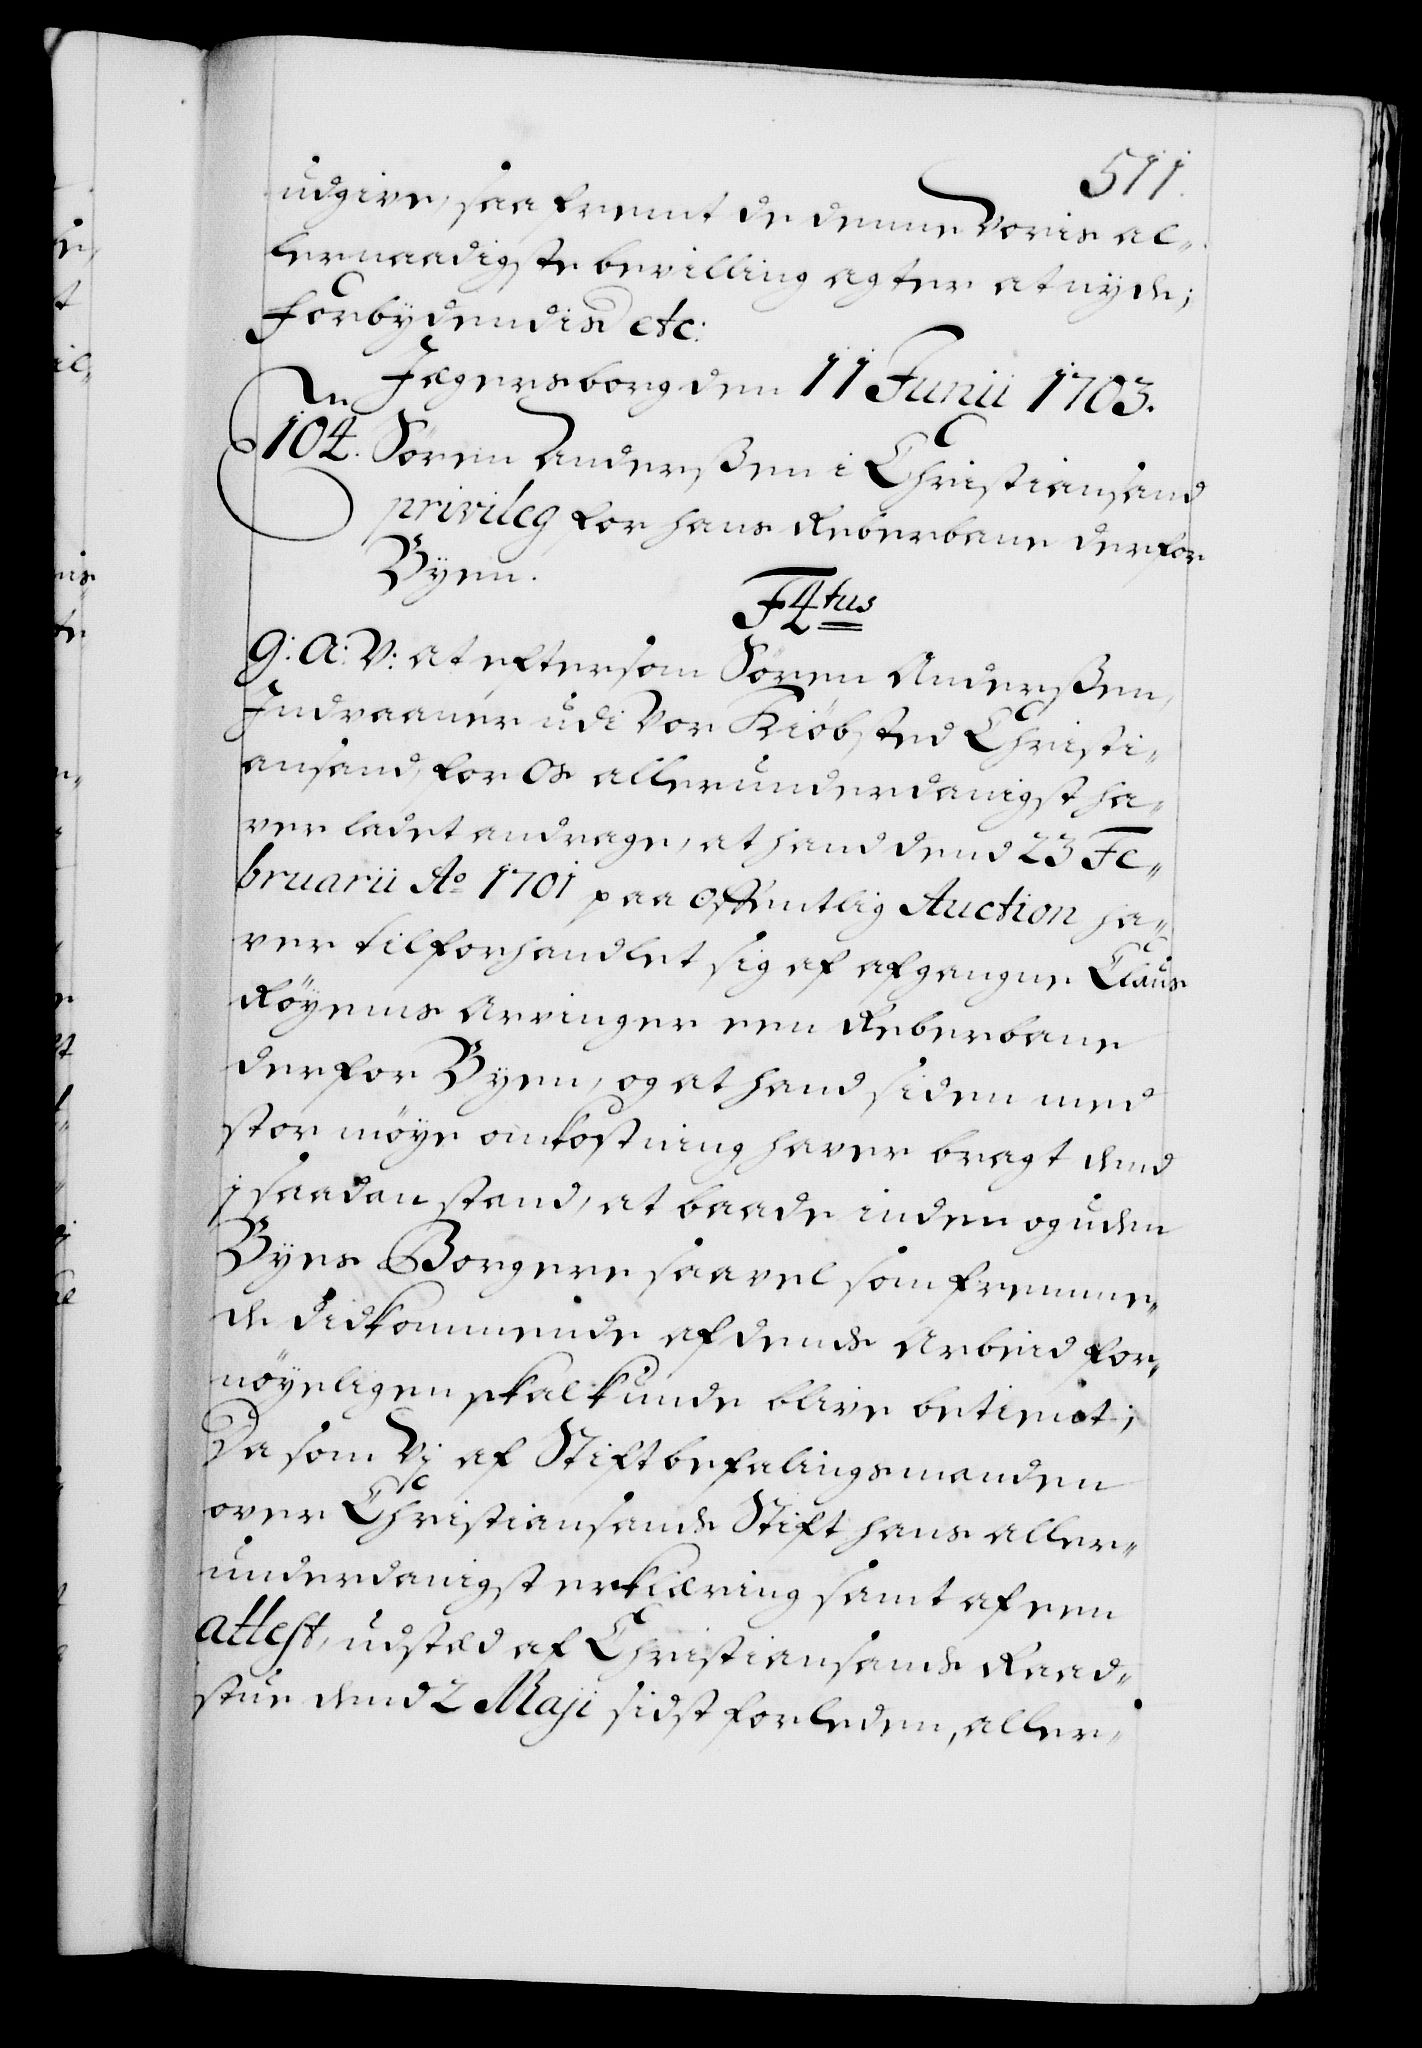 511.
udgive, saa fremt de denne Voris al-
lernaadigste bevilling agter at nyde;
Forbydendis etc:
Jægersborg den 11 Junii 1703.
104. Sören Anderßen i Christiansand
privileg for hans Reberbane derfor
Byen.
F4tus
G: A: V: at eftersom Sören Anderßen,
Indvaaner udi Vor Kiöbsted Christi-
ansand, for Os allerunderdanigst ha-
ver ladet andrage, at hand dend 23 Fe-
bruarii Ao 1701 paa offentlig Auction ha-
ver tilforhandlet sig af afgangne Claus
Röyems Arvinger een Reberbane
derfor Byen, og at hand siden med
stor möye omkostning haver bragt dend
j saadan stand, at baade inden og uden
Byes Borgere saavel som fremme-
de didkommende af dends Arbeid for-
nöyeligen skal kunde blive betient;
Da som Vj af Stiftbefalingsmanden
over Christiansands Stift hans aller-
underdanigst erklæring samt af een
attest, udsted af Christiansands Raad-
stue dend 2 Maji sidst forleden, aller-